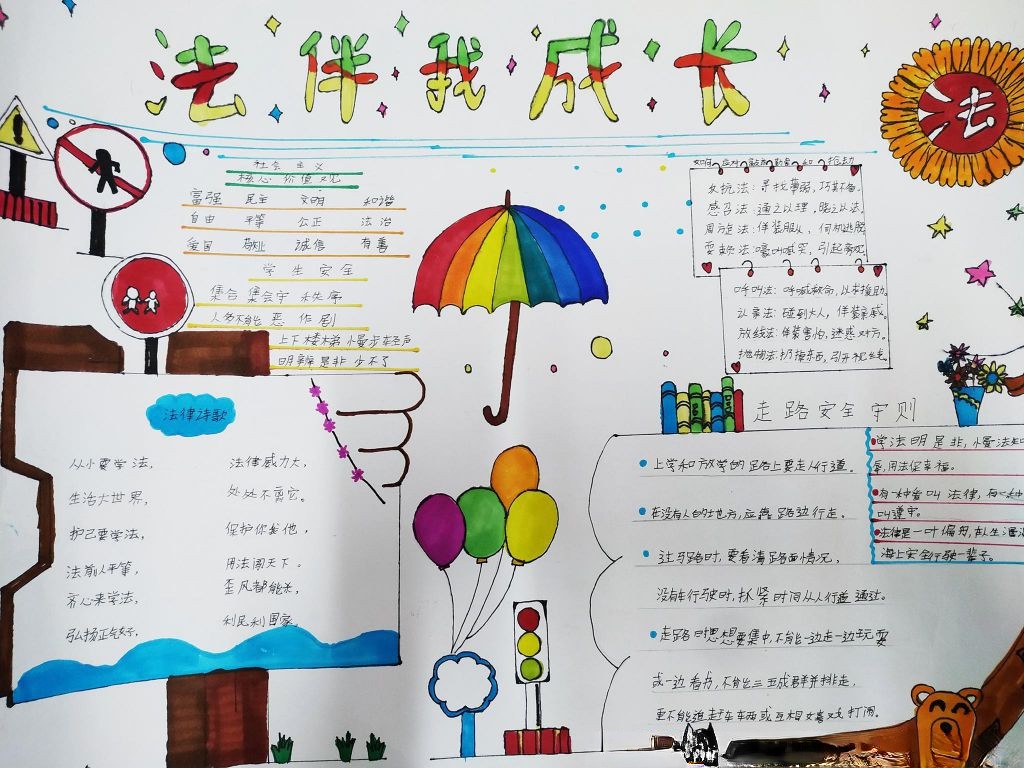 法伴我成长
法
社会主义
核心价值观
富强 民主 文明 和谐
自由 平等 公正 法治
爱国 敬业 诚信 友善
学生安全
集合集会守秩序
人多不能恶作剧
上下楼梯慢步轻声
明辨是非少不了
如何应对敲诈勒索和抢劫
反抗法:寻找薄弱,巧其不备。
感召法:通之以理,晓之以法。
周旋法:佯装服从,何机逃脱
耍赖法:嚎叫喊哭,引起旁观
呼叫法:呼喊救命,以求援助。
认亲法:碰到大人,佯装亲戚。
放线法:佯装害怕,迷惑对方。
抛物法:扔掉东西,引开视线
法律诗歌
从小要学法, 法律威力大,
生活大世界, 处处不离它。
护己要学法, 保护你我他,
法前人平等, 用法闯天下。
齐心来学法, 歪风都能杀,
弘扬正气好, 利民利国家。
走路安全守则
上学和放学的路上要走人行道。
在没有人的地方,应靠路边行走。
过马路时,要看清路面情况,
没有车行驶时,抓紧时间从人行道通过。
走路时思想要集中,不能一边走一边玩耍
或一边看书,不能三五成群并排走,
更不能追赶车车或互相嬉戏打闹。
学法明是非,懂法知
辱,用法促幸福。
有一种爱叫法律,有一种
叫遵守。
法律是一叶偏舟,在人生
海上安全行驶一辈子。